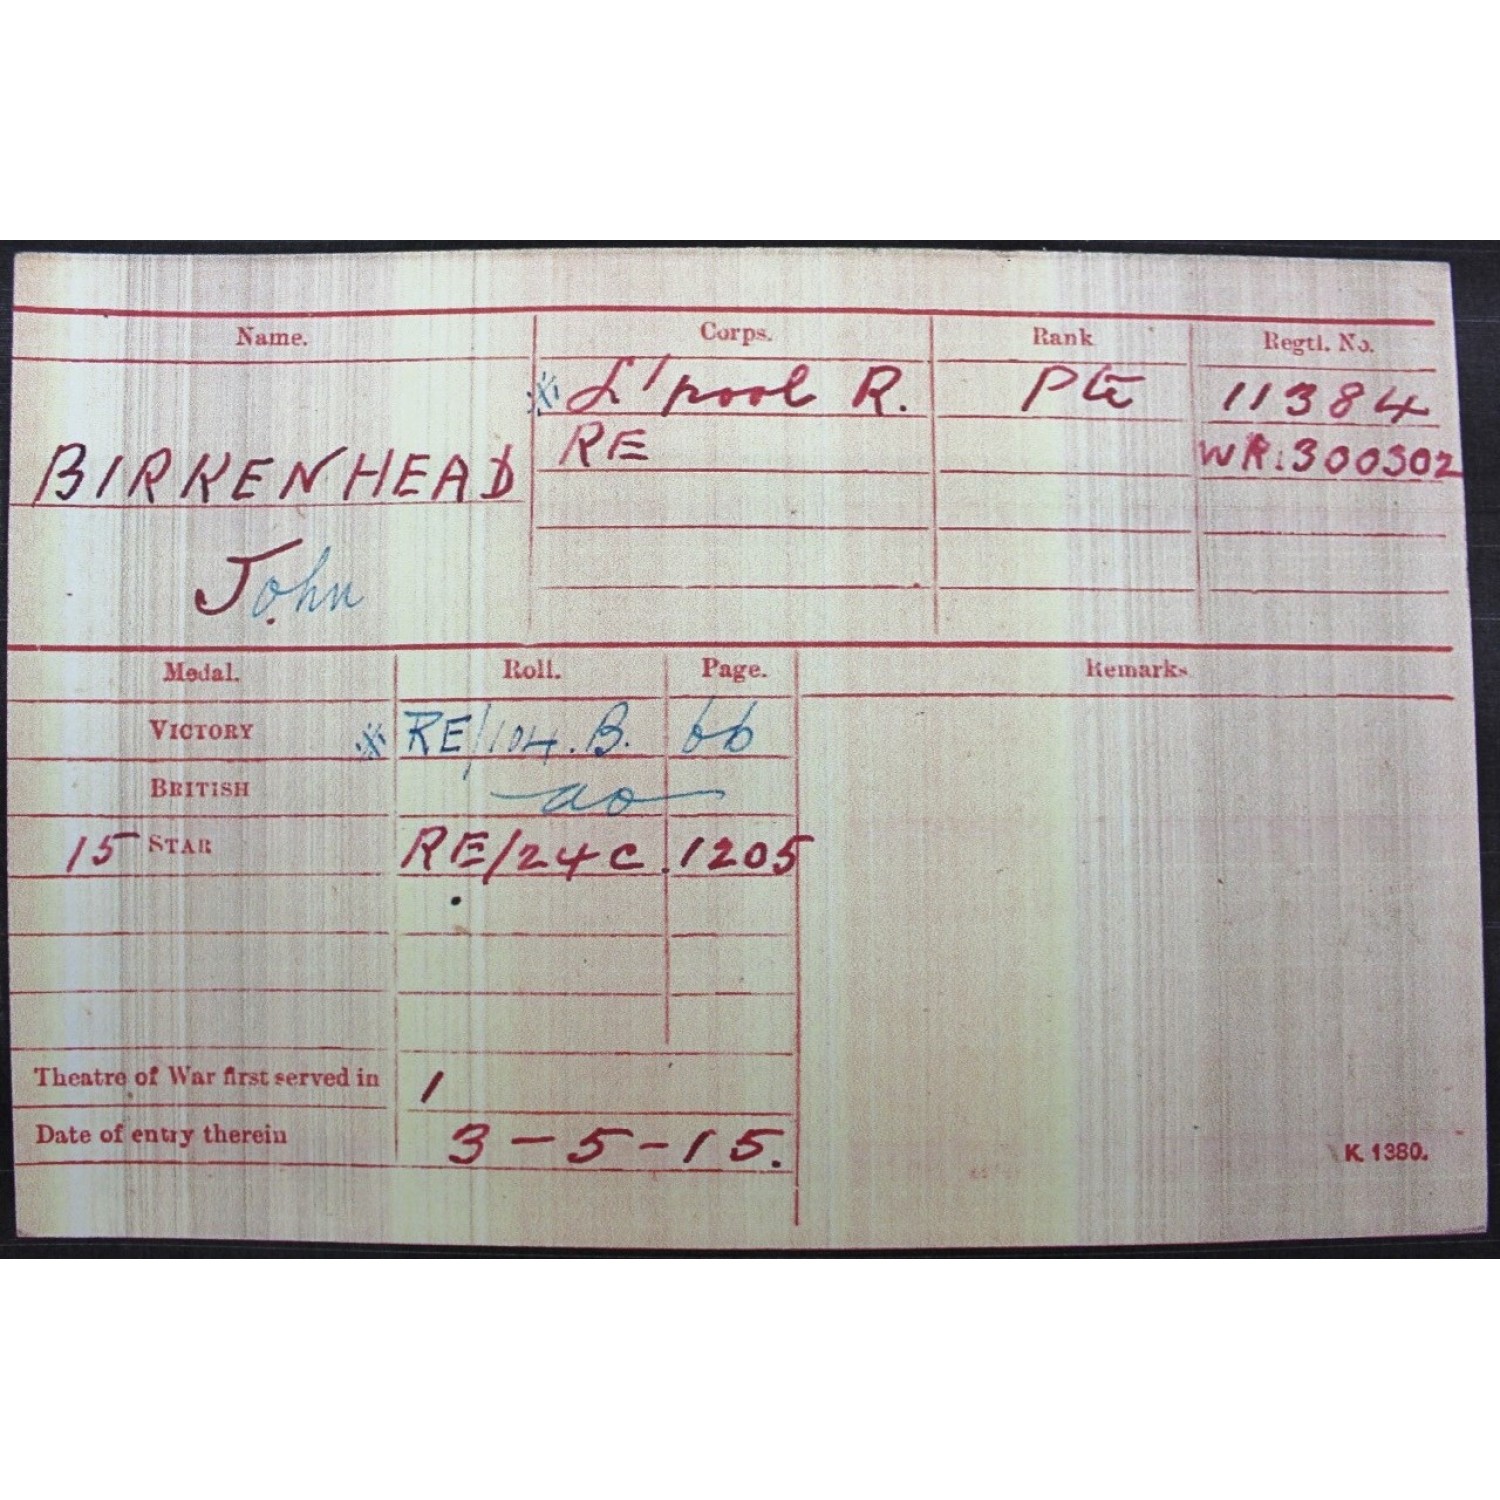 Name. Corps. Rank Regtl. No.
※ L'pool R. Pte 11384
BIRKENHEAD RE WR.300302
John
Medal. Roll. Page. Remarks
VICTORY ※ RE/104.B. 66
BRITISH — do —
15 STAR RE/24C. 1205
Theatre of War first served in 1
Date of entry therein 3-5-15.
K. 1380.